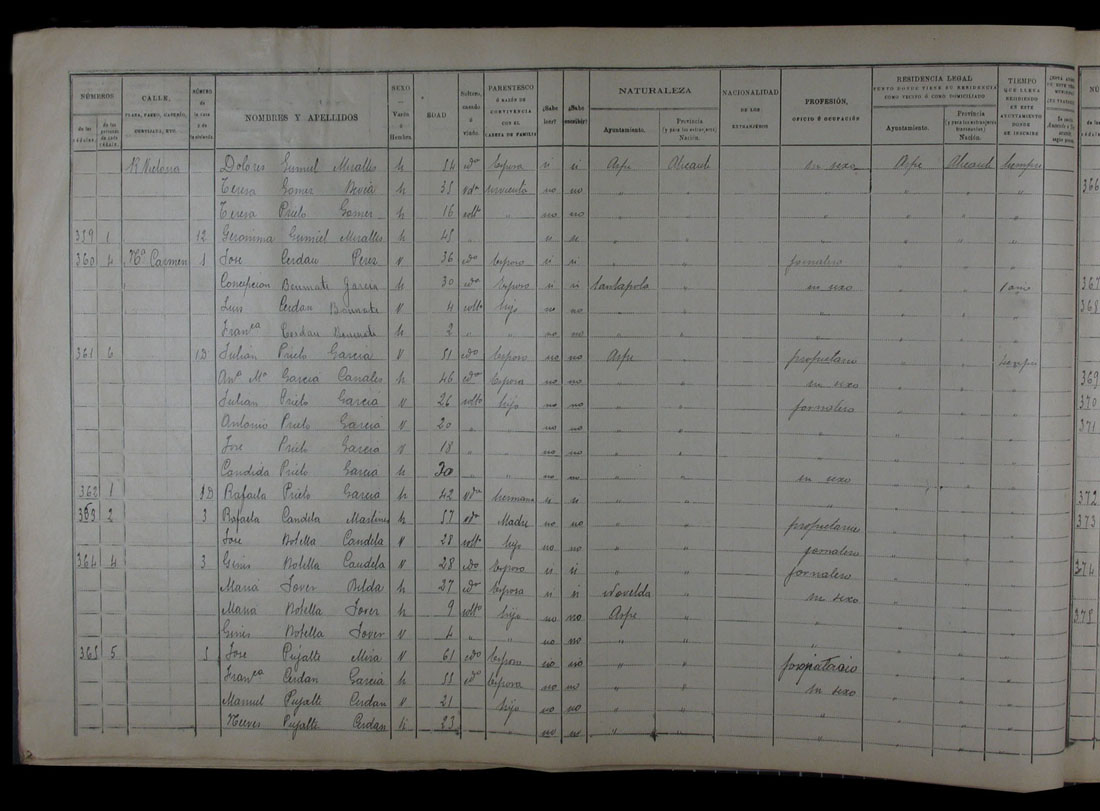 NÚMEROS
de las cédulas.
de las personas de cada cédula.
CALLE,
PLAZA, PASEO, CASERÍO, CORTIJADA, ETC.
NÚMERO de la casa
NOMBRES Y APELLIDOS
SEXO — Varón ó Hembra.
EDAD
Soltero, casado ó viudo.
PARENTESCO Ó RAZÓN DE CONVIVENCIA CON EL CABEZA DE FAMILIA
¿Sabe leer?
¿Sabe escribir?
NATURALEZA
Ayuntamiento.
Provincia (y para los extranjeros) Nación.
NACIONALIDAD DE LOS EXTRANJEROS
PROFESIÓN, OFICIO Ó OCUPACIÓN
RESIDENCIA LEGAL
PUNTO DONDE TIENE SU RESIDENCIA COMO VECINO Ó COMO DOMICILIADO
Ayuntamiento.
Provincia (y para los extranjeros transeuntes) Nación.
TIEMPO QUE LLEVA RESIDIENDO EN ESTE AYUNTAMIENTO DONDE SE INSCRIBE
R. Victoria Dolores Gumiel Miralles h 54 cda Esposa si si Aspe Alicante su sexo Aspe Alicante siempre
Teresa Gomez h 35 vda sirvienta no no " " " " " "
Teresa Prieto Gomez h 16 solt " no no " " " " " "
359 1 12 Geronima Gumiel Miralles h 45 " si si " " " " " "
360 4 Carmen 1 Jose Cerdan Perez v 36 cdo Esposo si si " " jornalero " " "
Concepcion Bonmati Garcia h 30 cda Esposa si si Santapola " su sexo " "
Luis Cerdan Bonmati v 4 solto hijo no no " " " " "
Franca Cerdan Bonmati h 2 " " no no " " " " "
361 6 1D Julian Prieto Garcia v 51 cdo Esposo no no Aspe " propietario " " siempre
Ana Ma Garcia Canales h 46 cda Esposa no no " " su sexo " " "
Julian Prieto Garcia v 26 solto hijo no no " " jornalero " " "
Antonio Prieto Garcia v 20 " " no no " " " " " "
Jose Prieto Garcia v 18 " " no no " " " " " "
Candida Prieto Garcia h 30 " " no no " " su sexo " " "
362 1 Rafaela Prieto Garcia h 42 vda hermana si si " " " " " "
363 2 3 Rafaela Candela Martinez h 57 vda Madre no no " " propietaria " " "
Jose Botella Candela v 28 solto hijo no no " " jornalero " " "
364 4 3 Ginis Botella Candela v 28 cdo Esposo si si " " jornalero " " "
Maria Jover Belda h 27 cda Esposa si si Novelda " su sexo " " "
Maria Botella Jover h 9 solto hijo no no Aspe " " " " "
Ginis Botella Jover v 4 " " no no " " " " "
365 5 Jose Pujalte Mira v 61 cdo Esposo no no " " propietario " " "
Franca Cerdan Garcia h 55 cda Esposa no no " " su sexo " " "
Manuel Pujalte Cerdan v 21 hijo no no " " " " "
Nieves Pujalte Cerdan h 23 " no no " " " " "
366
367
368
369
370
371
372
373
374
375